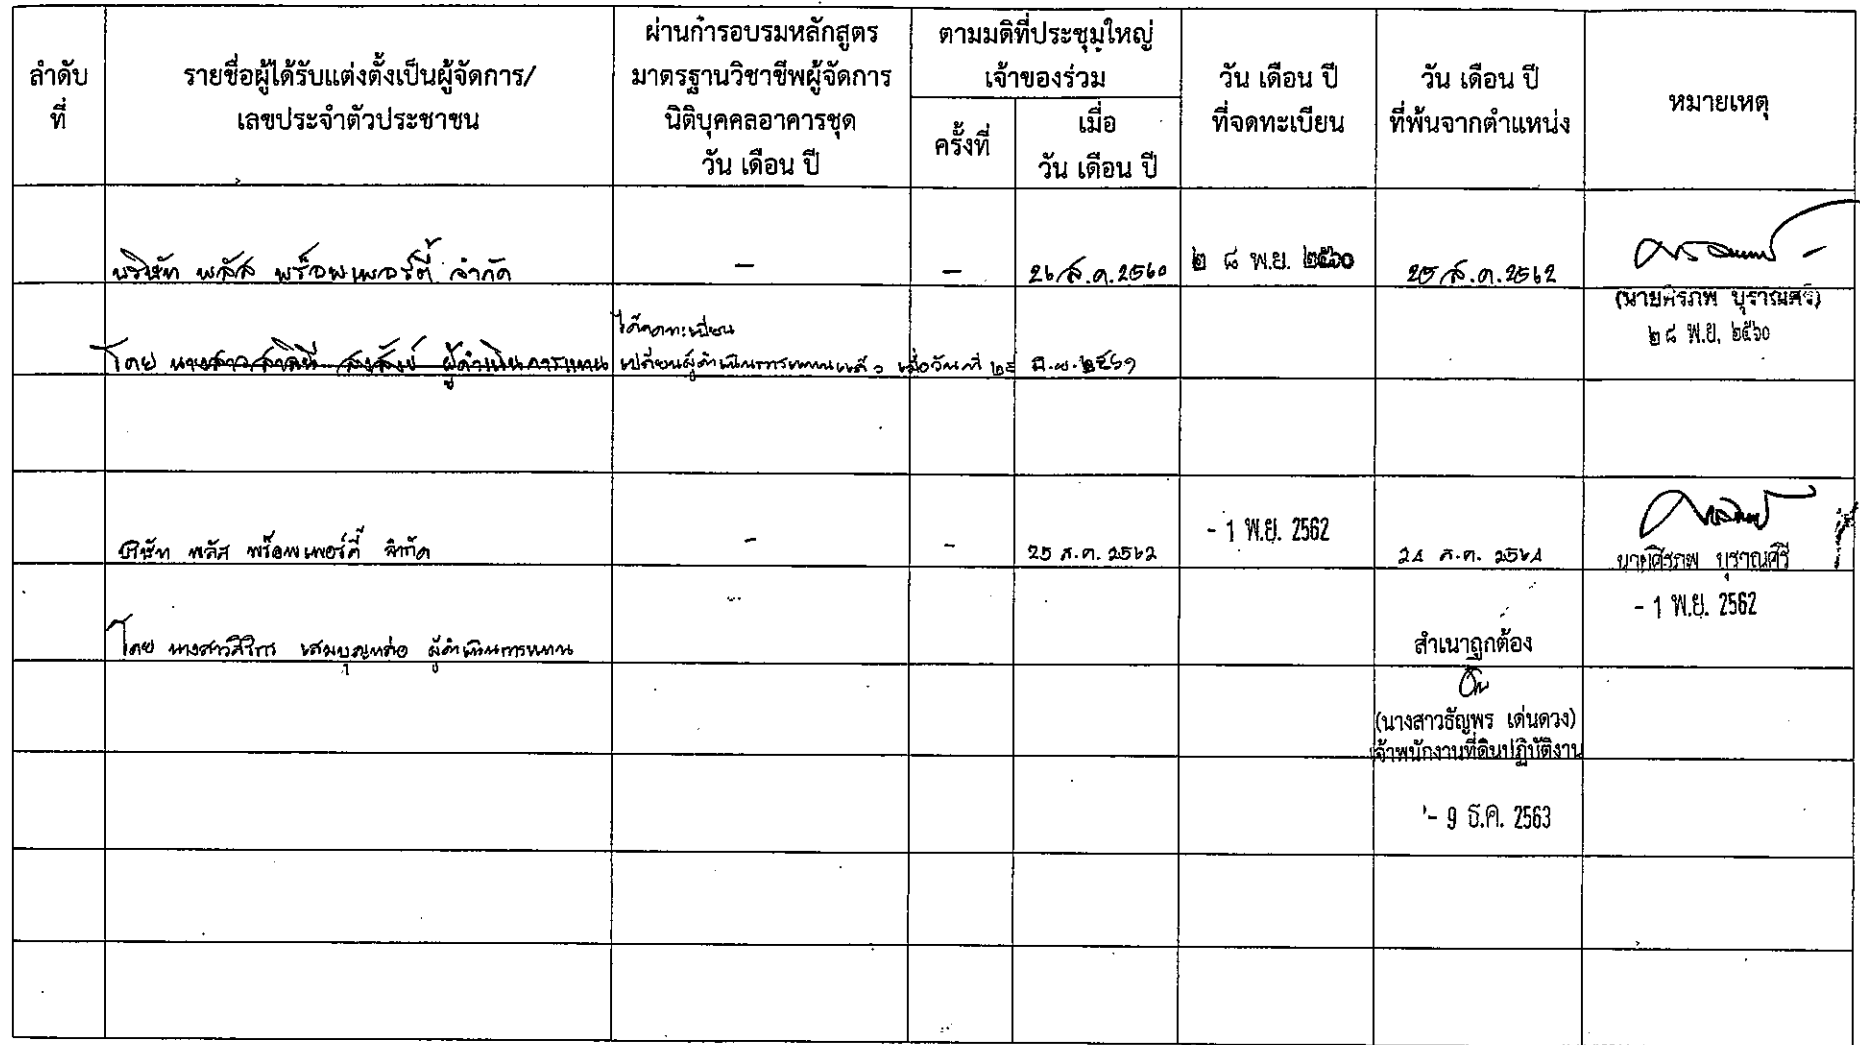 ลำดับ
ที่
รายชื่อผู้ได้รับแต่งตั้งเป็นผู้จัดการ/
เลขประจำตัวประชาชน
ผ่านการอบรมหลักสูตร
มาตรฐานวิชาชีพผู้จัดการ
นิติบุคคลอาคารชุด
วัน เดือน ปี
ตามมติที่ประชุมใหญ่
เจ้าของร่วม
ครั้งที่
เมื่อ
วัน เดือน ปี
วัน เดือน ปี
ที่จดทะเบียน
วัน เดือน ปี
ที่พ้นจากตำแหน่ง
หมายเหตุ
บริษัท พลัส พร็อพเพอร์ตี้ จำกัด
–
–
26 ส.ค. 2560
๒ ๘ พ.ย. ๒๕๖๐
25 ส.ค. 2562
(นายศิรภพ บุราณศรี)
๒๘ พ.ย. ๒๕๖๐
ได้จดทะเบียน
โดย นางสาว ผู้ดำเนินการแทน
เปลี่ยนผู้ดำเนินการแทนแล้ว เมื่อวันที่ มิ.ย. ๒๕๖๑
บริษัท พลัส พร็อพเพอร์ตี้ จำกัด
–
–
25 ส.ค. 2562
- 1 พ.ย. 2562
24 ส.ค. 2564
นายศิรภพ บุราณศรี
- 1 พ.ย. 2562
โดย นางสาวสิริกร ผู้ดำเนินการแทน
สำเนาถูกต้อง
(นางสาวธัญพร เด่นดวง)
เจ้าพนักงานที่ดินปฏิบัติงาน
- 9 ธ.ค. 2563